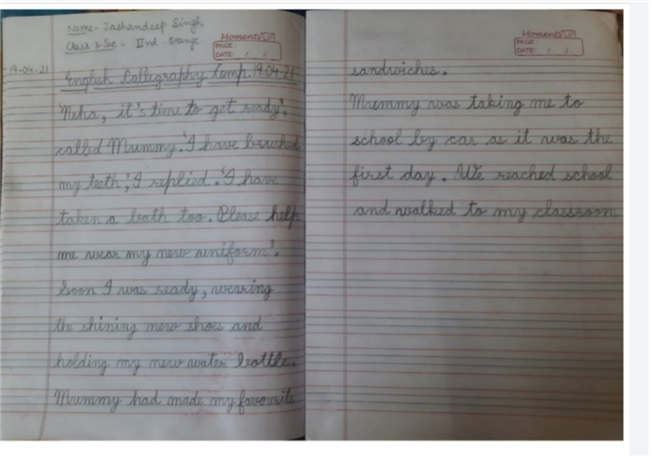 Name - Jashandeep Singh
Class & Sec - IInd Orange
Moments
PAGE:
DATE: / /
19-04-21
English Calligraphy Comp. 19.04.21
'Neha, it's time to get ready'.
called Mummy. 'I have brushed
my teeth', I replied. 'I have
taken a bath too. Please help
me wear my new uniform'.
Soon I was ready, wearing
the shining new shoes and
holding my new water bottle.
Mummy had made my favourite
Moments
PAGE:
DATE: / /
sandwiches.
Mummy was taking me to
school by car as it was the
first day. We reached school
and walked to my classroom